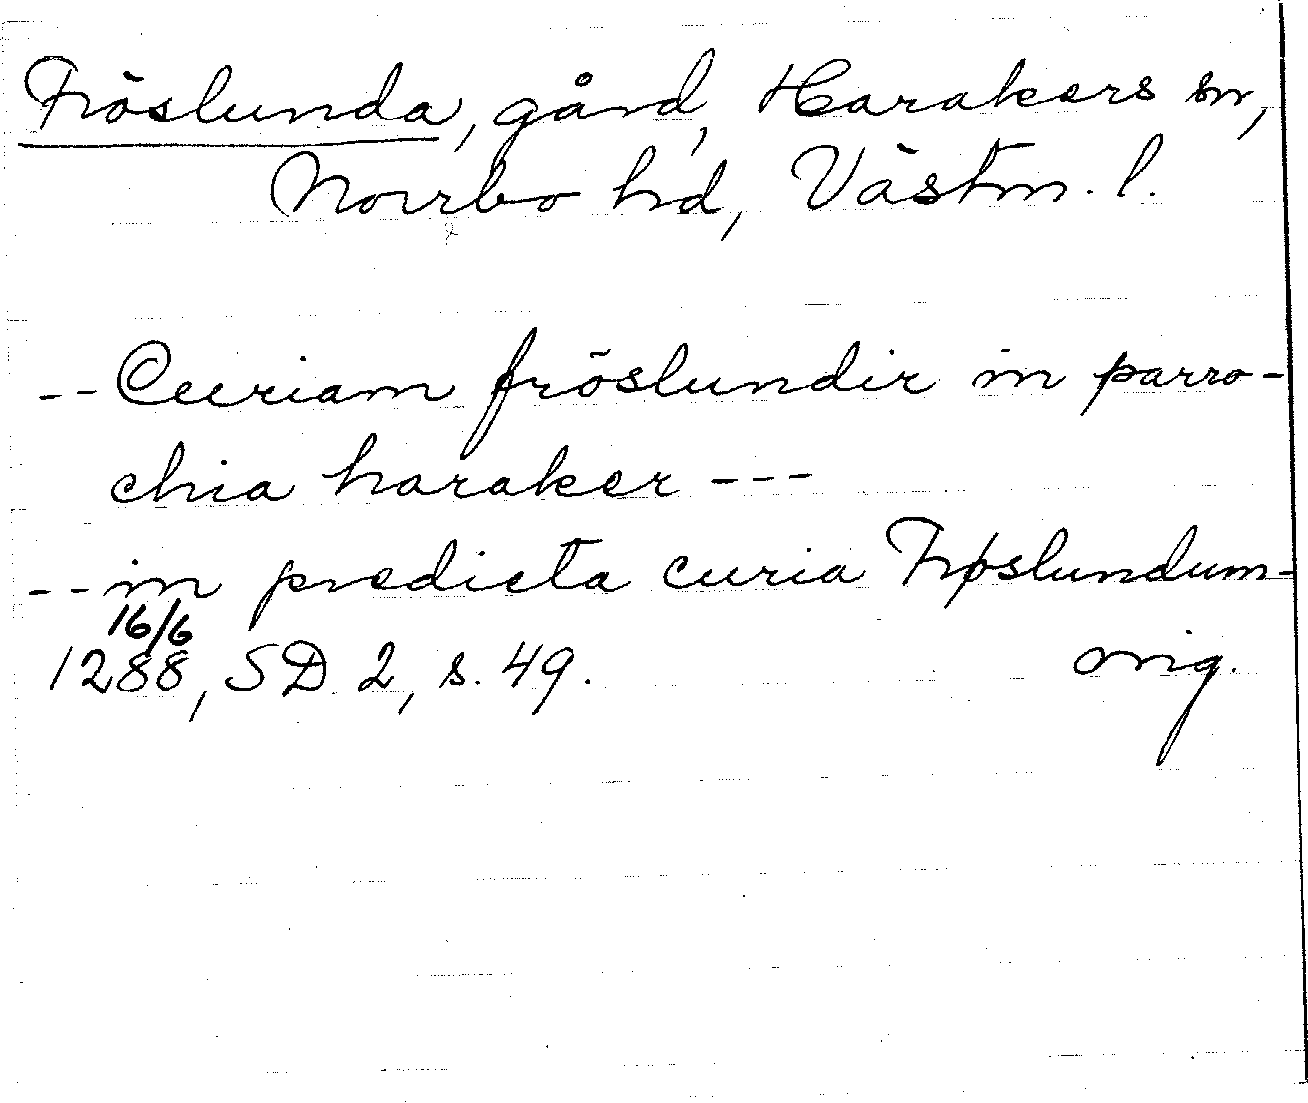 Fröslunda, gård, Harakers sn,
Norrbo hd, Västm. l.
-- Curiam fröslundir in parro-
chia haraker ---
-- in predicta curia Frøslundum-
16/6
1288, SD 2, s. 49. orig.